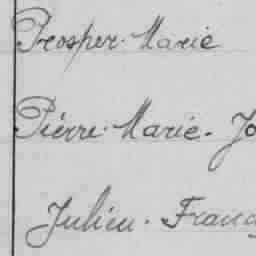 Prosper. Marie
Pierre. Marie. Jo
Julien. Franç